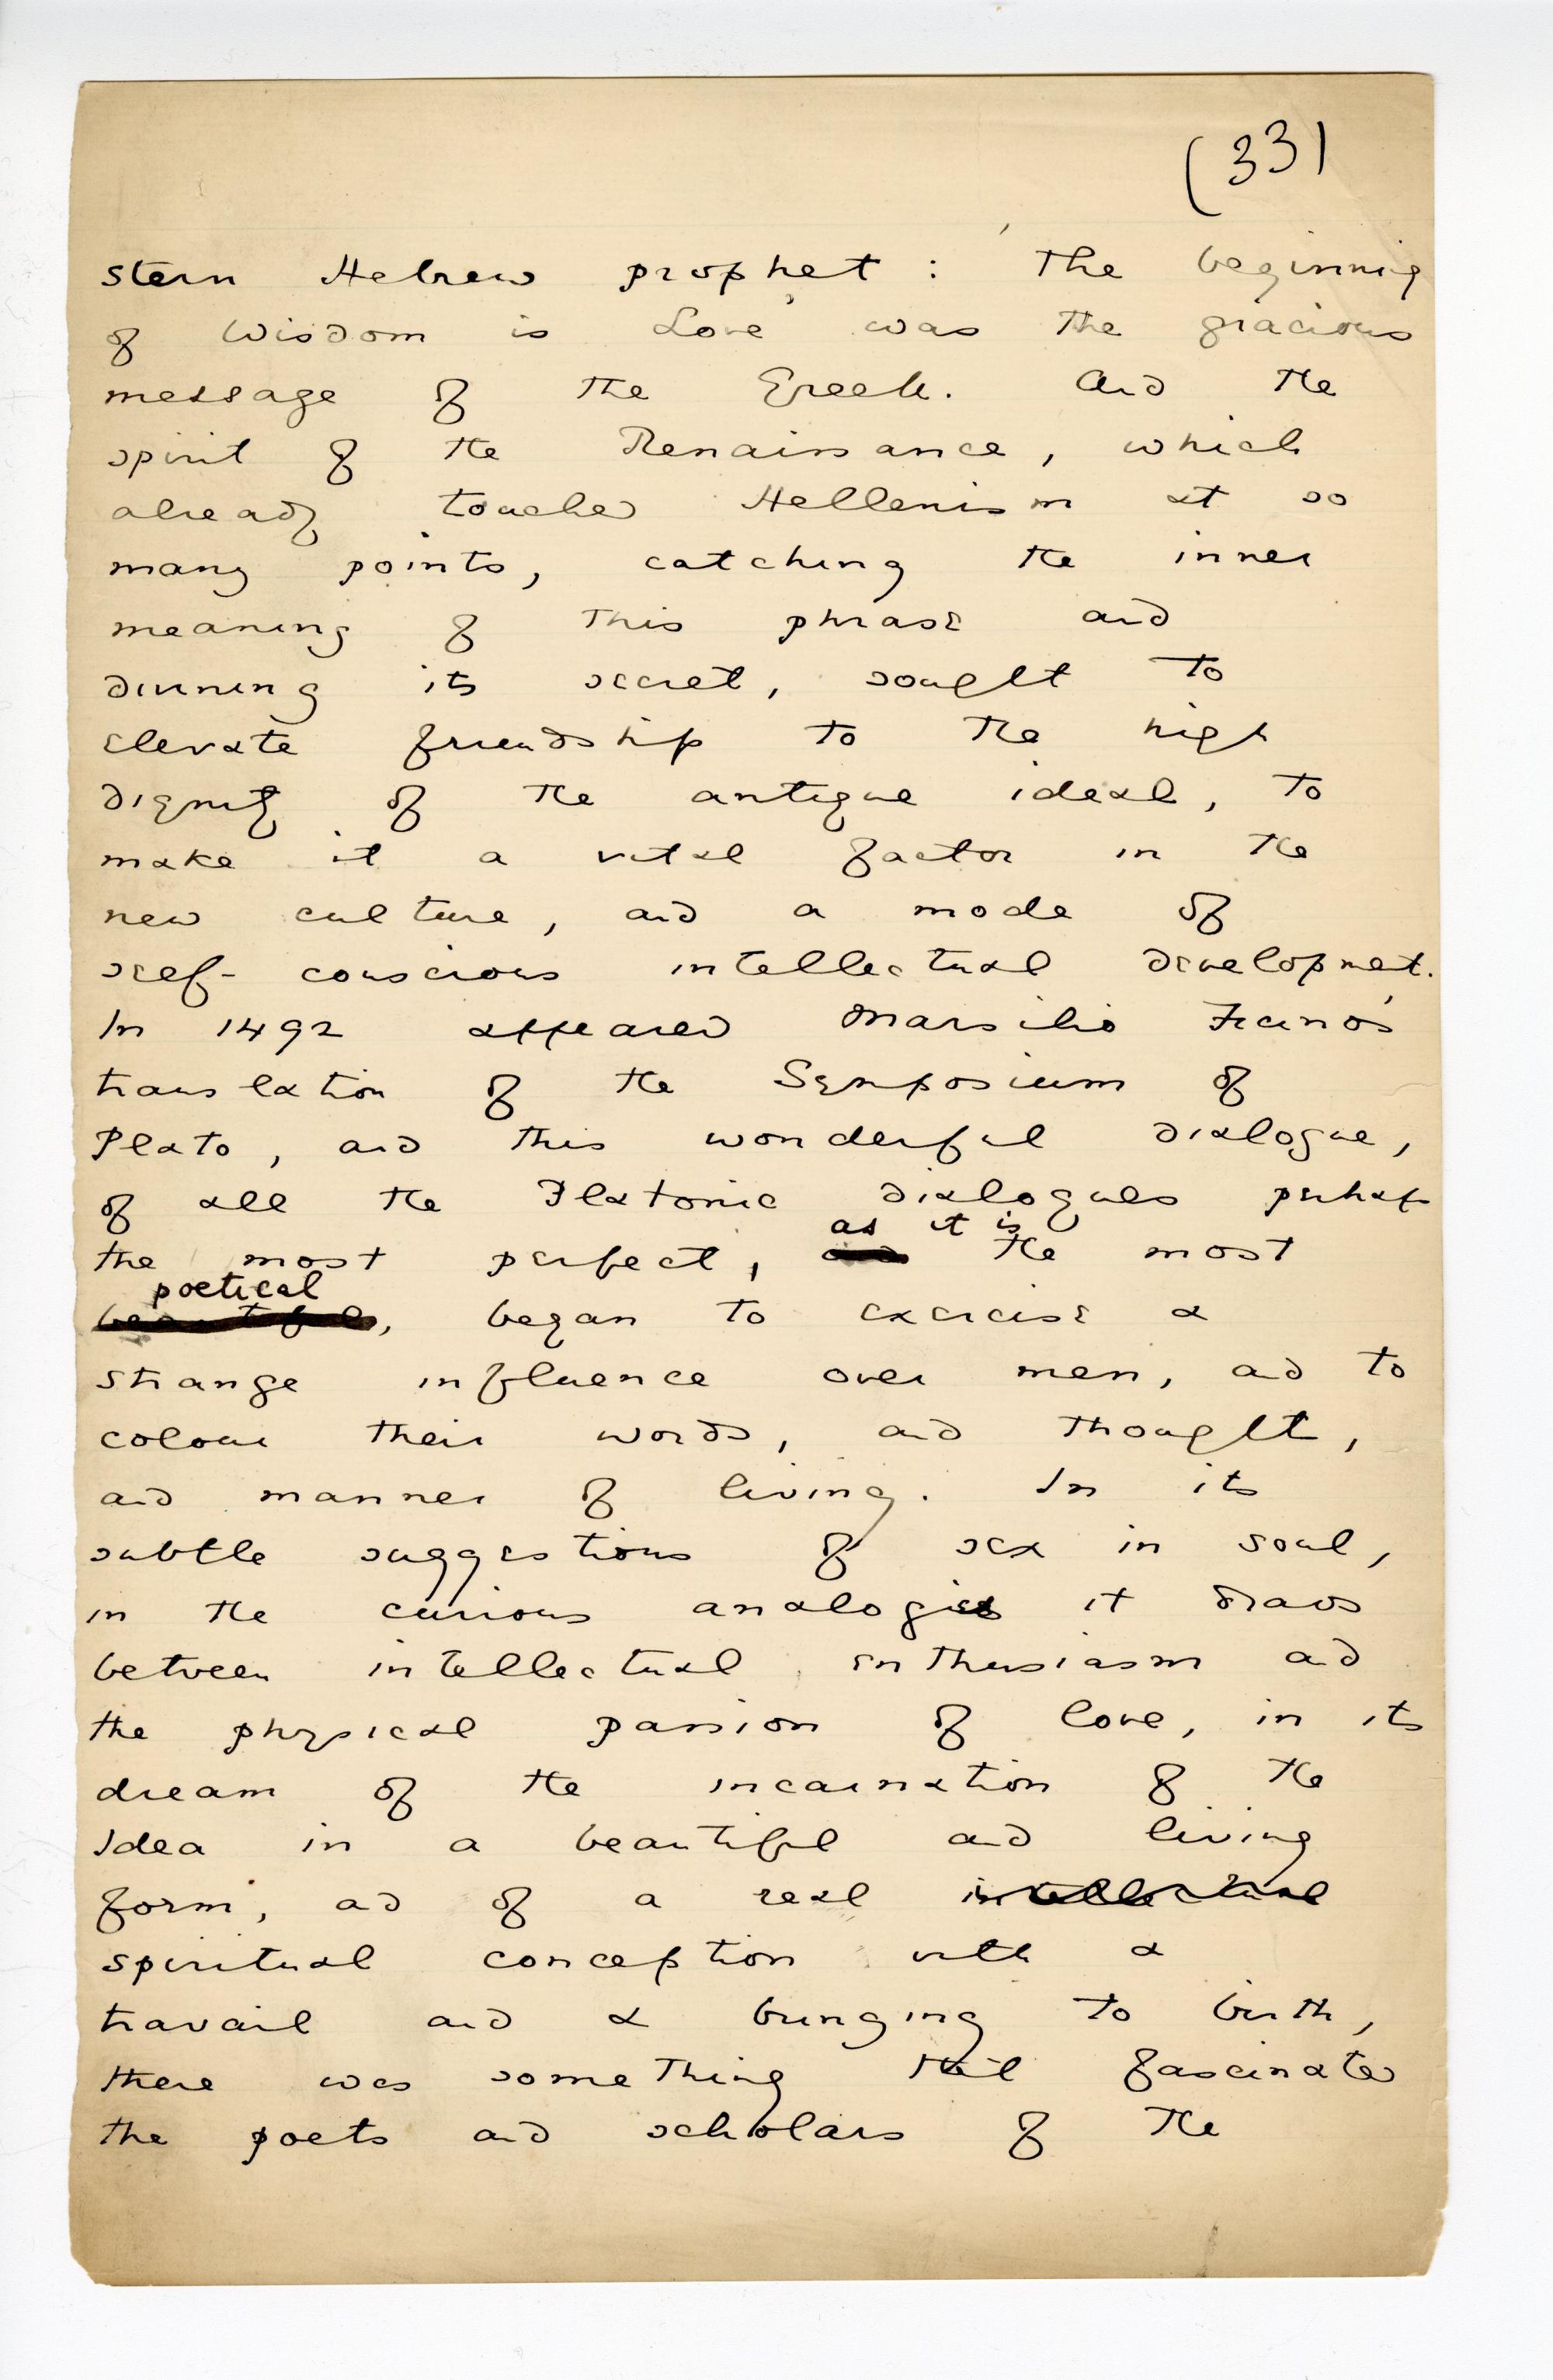 (33)
stern Hebrew prophet : 'The beginning
of Wisdom is Love' was the gracious
message of the Greek. And the
spirit of the Renaissance, which
already touched Hellenism at so
many points, catching the inner
meaning of this phrase and
divining its secret, sought to
elevate friendship to the high
dignity of the antique ideal, to
make it a vital factor in the
new culture, and a mode of
self-conscious intellectual development.
In 1492 appeared Marsilio Ficino's
translation of the Symposium of
Plato, and this wonderful dialogue,
of all the Platonic dialogues perhaps
as it is
the most perfect, and the most
poetical
beautiful, began to exercise a
strange influence over men, and to
colour their words, and thought,
and manner of living. In its
subtle suggestions of sex in soul,
in the curious analogies it draws
between intellectual enthusiasm and
the physical passion of love, in its
dream of the incarnation of the
Idea in a beautiful and living
form, and of a real intellectual
spiritual conception with a
travail and a bringing to birth,
there was something that fascinated
the poets and scholars of the